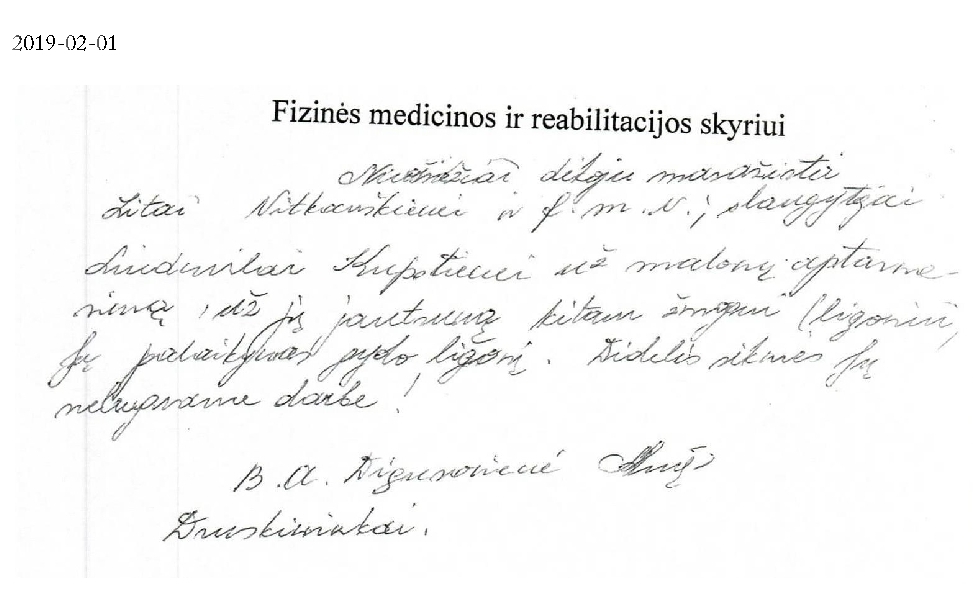 2019-02-01
Fizinės medicinos ir reabilitacijos skyriui
Nuoširdžiai dėkoju masažistei
Litai Vitkauskienei ir f. m. v., slaugytojai
Liudmilai Kupstienei už malonų aptarna-
vimą, už jų jautrumą kitam žmogui (ligoniui,
Jų palaikymas gydo ligonį. Didelės sėkmės Jų
nelengvame darbe!
B. A.
Druskininkai.